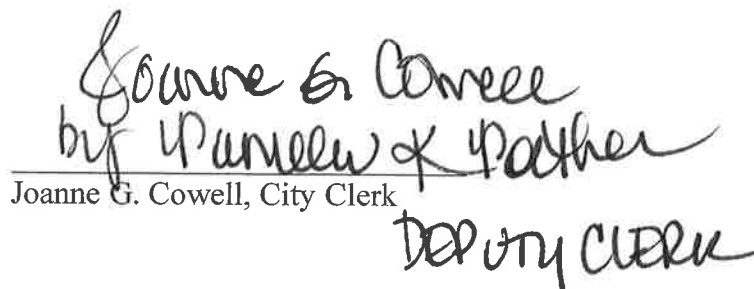 Joanne G. Cowell
by Pamela K
Joanne G. Cowell, City Clerk
DEPUTY CLERK